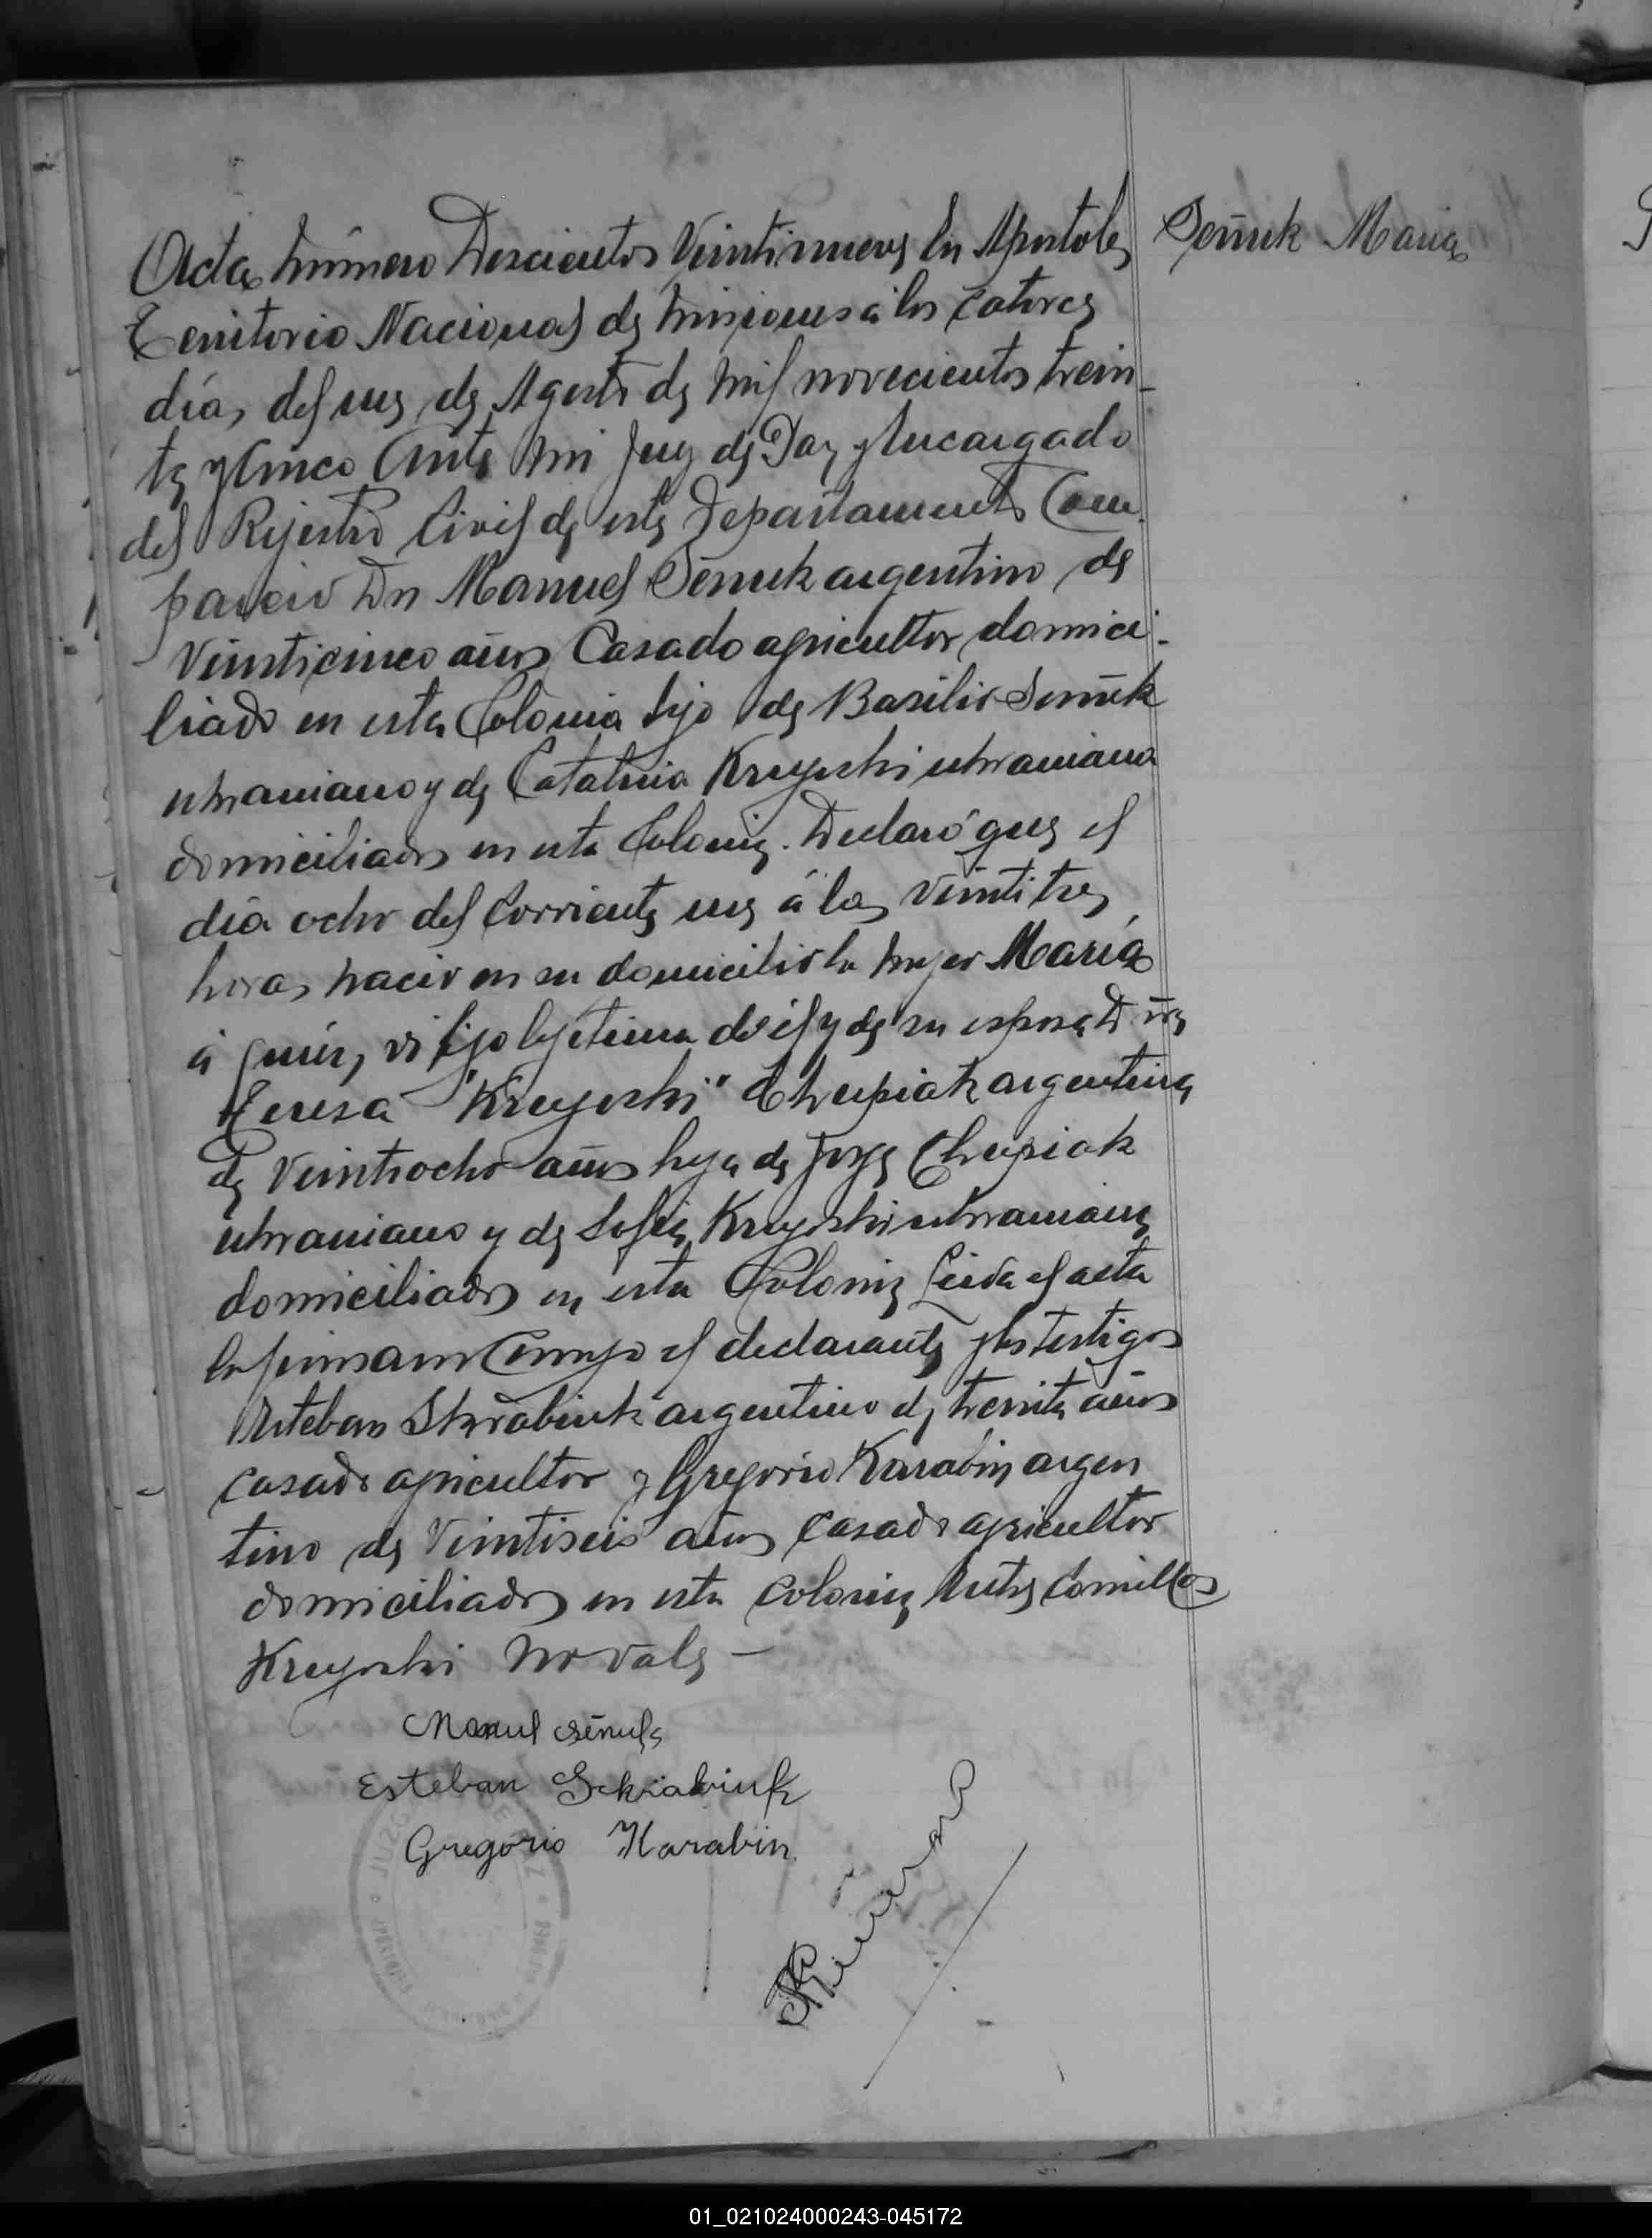 Acta número Doscientos Veintinueve En Apostoles
Territorio Nacional de Misiones á los catorce
día, del mes de Agosto de mil novecientos trein-
ta y Cinco Ante mi Juez de Paz y Encargado
del Rejistro Civil de este Departamento Com
pareció Dn Manuel Señuk argentino de
Veinticinco años Casado agricultor domici-
liado en esta Colonia hijo de Basilio Señuk
ukraniano y de Catalina Kreyeski ukraniana
domiciliados en esta Colonia. Declaró que el
día ocho del corriente mes á las veintitres
horas nació en su domicilio la mujer María
á quien, vi hija lejitima de él y de su esposa Dña
Teresa "Kreyeski" Chrupiak argentina
de Veintiocho años hija de Jorge Chrupiak
ukraniano y de Sofia Kreyeski ukraniana
domiciliados en esta Colonia Leida el acta
la firmaron Conmigo el declarante y los testigos
Esteban Skrabiuk argentino de treinta años
casado agricultor y Gregorio Karabin argen
tino de Veintiseis años casado agricultor
domiciliados en esta colonia Entre Comillas
Kreyeski no vale —
Manuel Señuk
Esteban Sckrabiuk
Gregorio Karabin.
Señuk Maria
JUZGADO DE PAZ
01_021024000243-045172